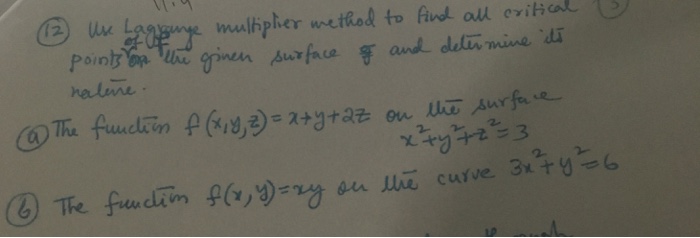 (12) Use Lagrange multiplier method to find all critical
points of f on the given surface and determine its
nature.
(a) The function f(x,y,z) = x+y+2z on the surface
x²+y²+z²=3
(b) The function f(x,y)=xy on the curve 3x²+y²=6